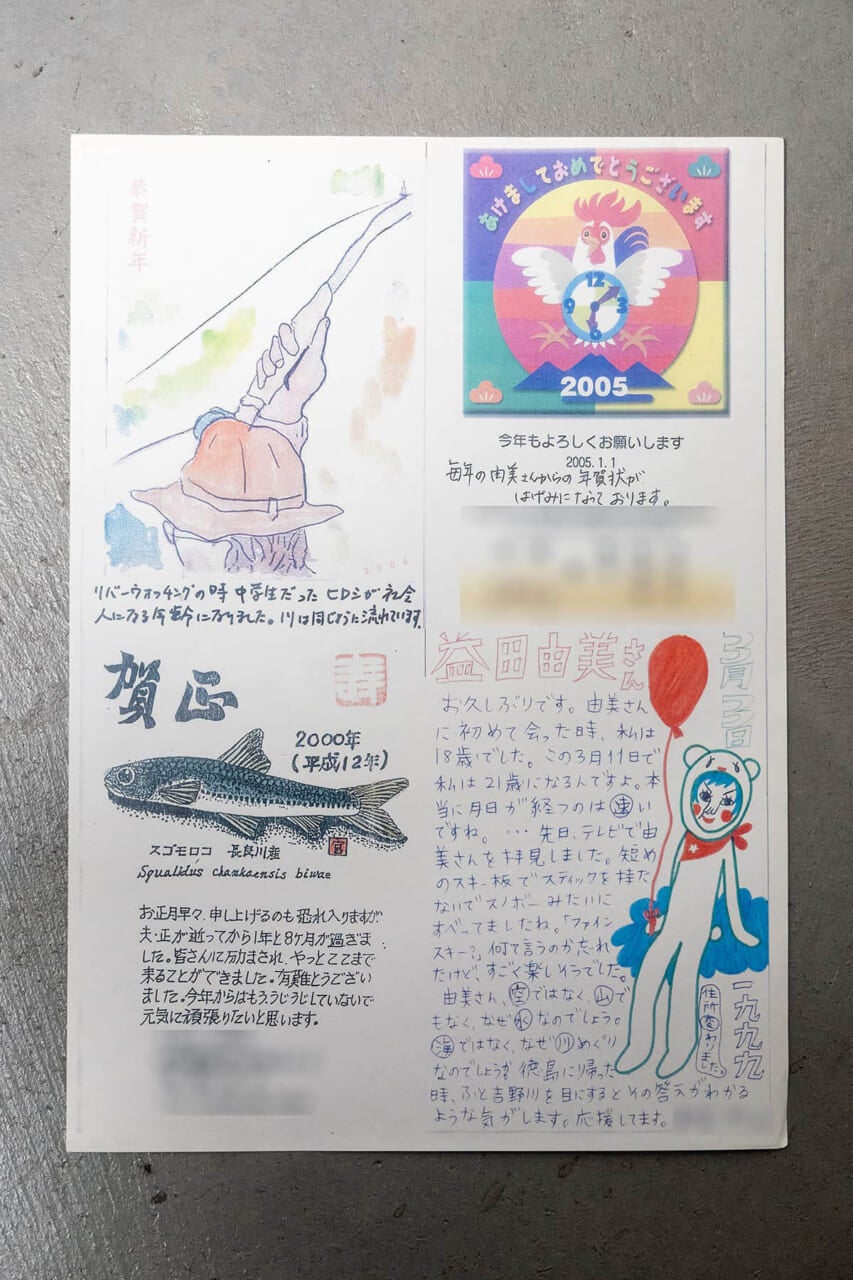 恭賀新年
2006
リバーウオッチングの時 中学生だった ヒロシが 社会
人になる年齢になりました。川は同じように流れています。
あけましておめでとうございます
12
9
3
6
2005
今年もよろしくお願いします
2005.1.1
毎年の由美さんからの年賀状が
はげみになっております。
賀正
寿
2000年
(平成12年)
スゴモロコ 長良川産
Squalidus chankaensis biwae
お正月早々、申し上げるのも恐れ入りますが
夫・正が逝ってから1年と8ケ月が過ぎま
した。皆さんに励まされ、やっとここまで
来ることができました。有難とうござい
ました。今年からはもううじうじしていないで
元気に頑張りたいと思います。
益田由美さん
お久しぶりです。由美さん
に初めて会った時、私は
18歳でした。この3月11日で
私は21歳になるんですよ。本
当に月日が経つのは速い
ですね。…先日、テレビで由
美さんを拝見しました。短め
のスキー板でスティックを持た
ないでスノボーみたいに
すべってましたね。「ファイン
スキー?」何て言うのか忘れ
たけど、すごく楽しそうでした。
由美さん、空ではなく、山で
もなく、なぜ水なのでしょう。
海ではなく、なぜ川めぐり
なのでしょうか? 徳島に帰った
時、ふと吉野川を目にするとその答えがわかる
ような気がします。応援してます。
一九九九
住所変わりました。